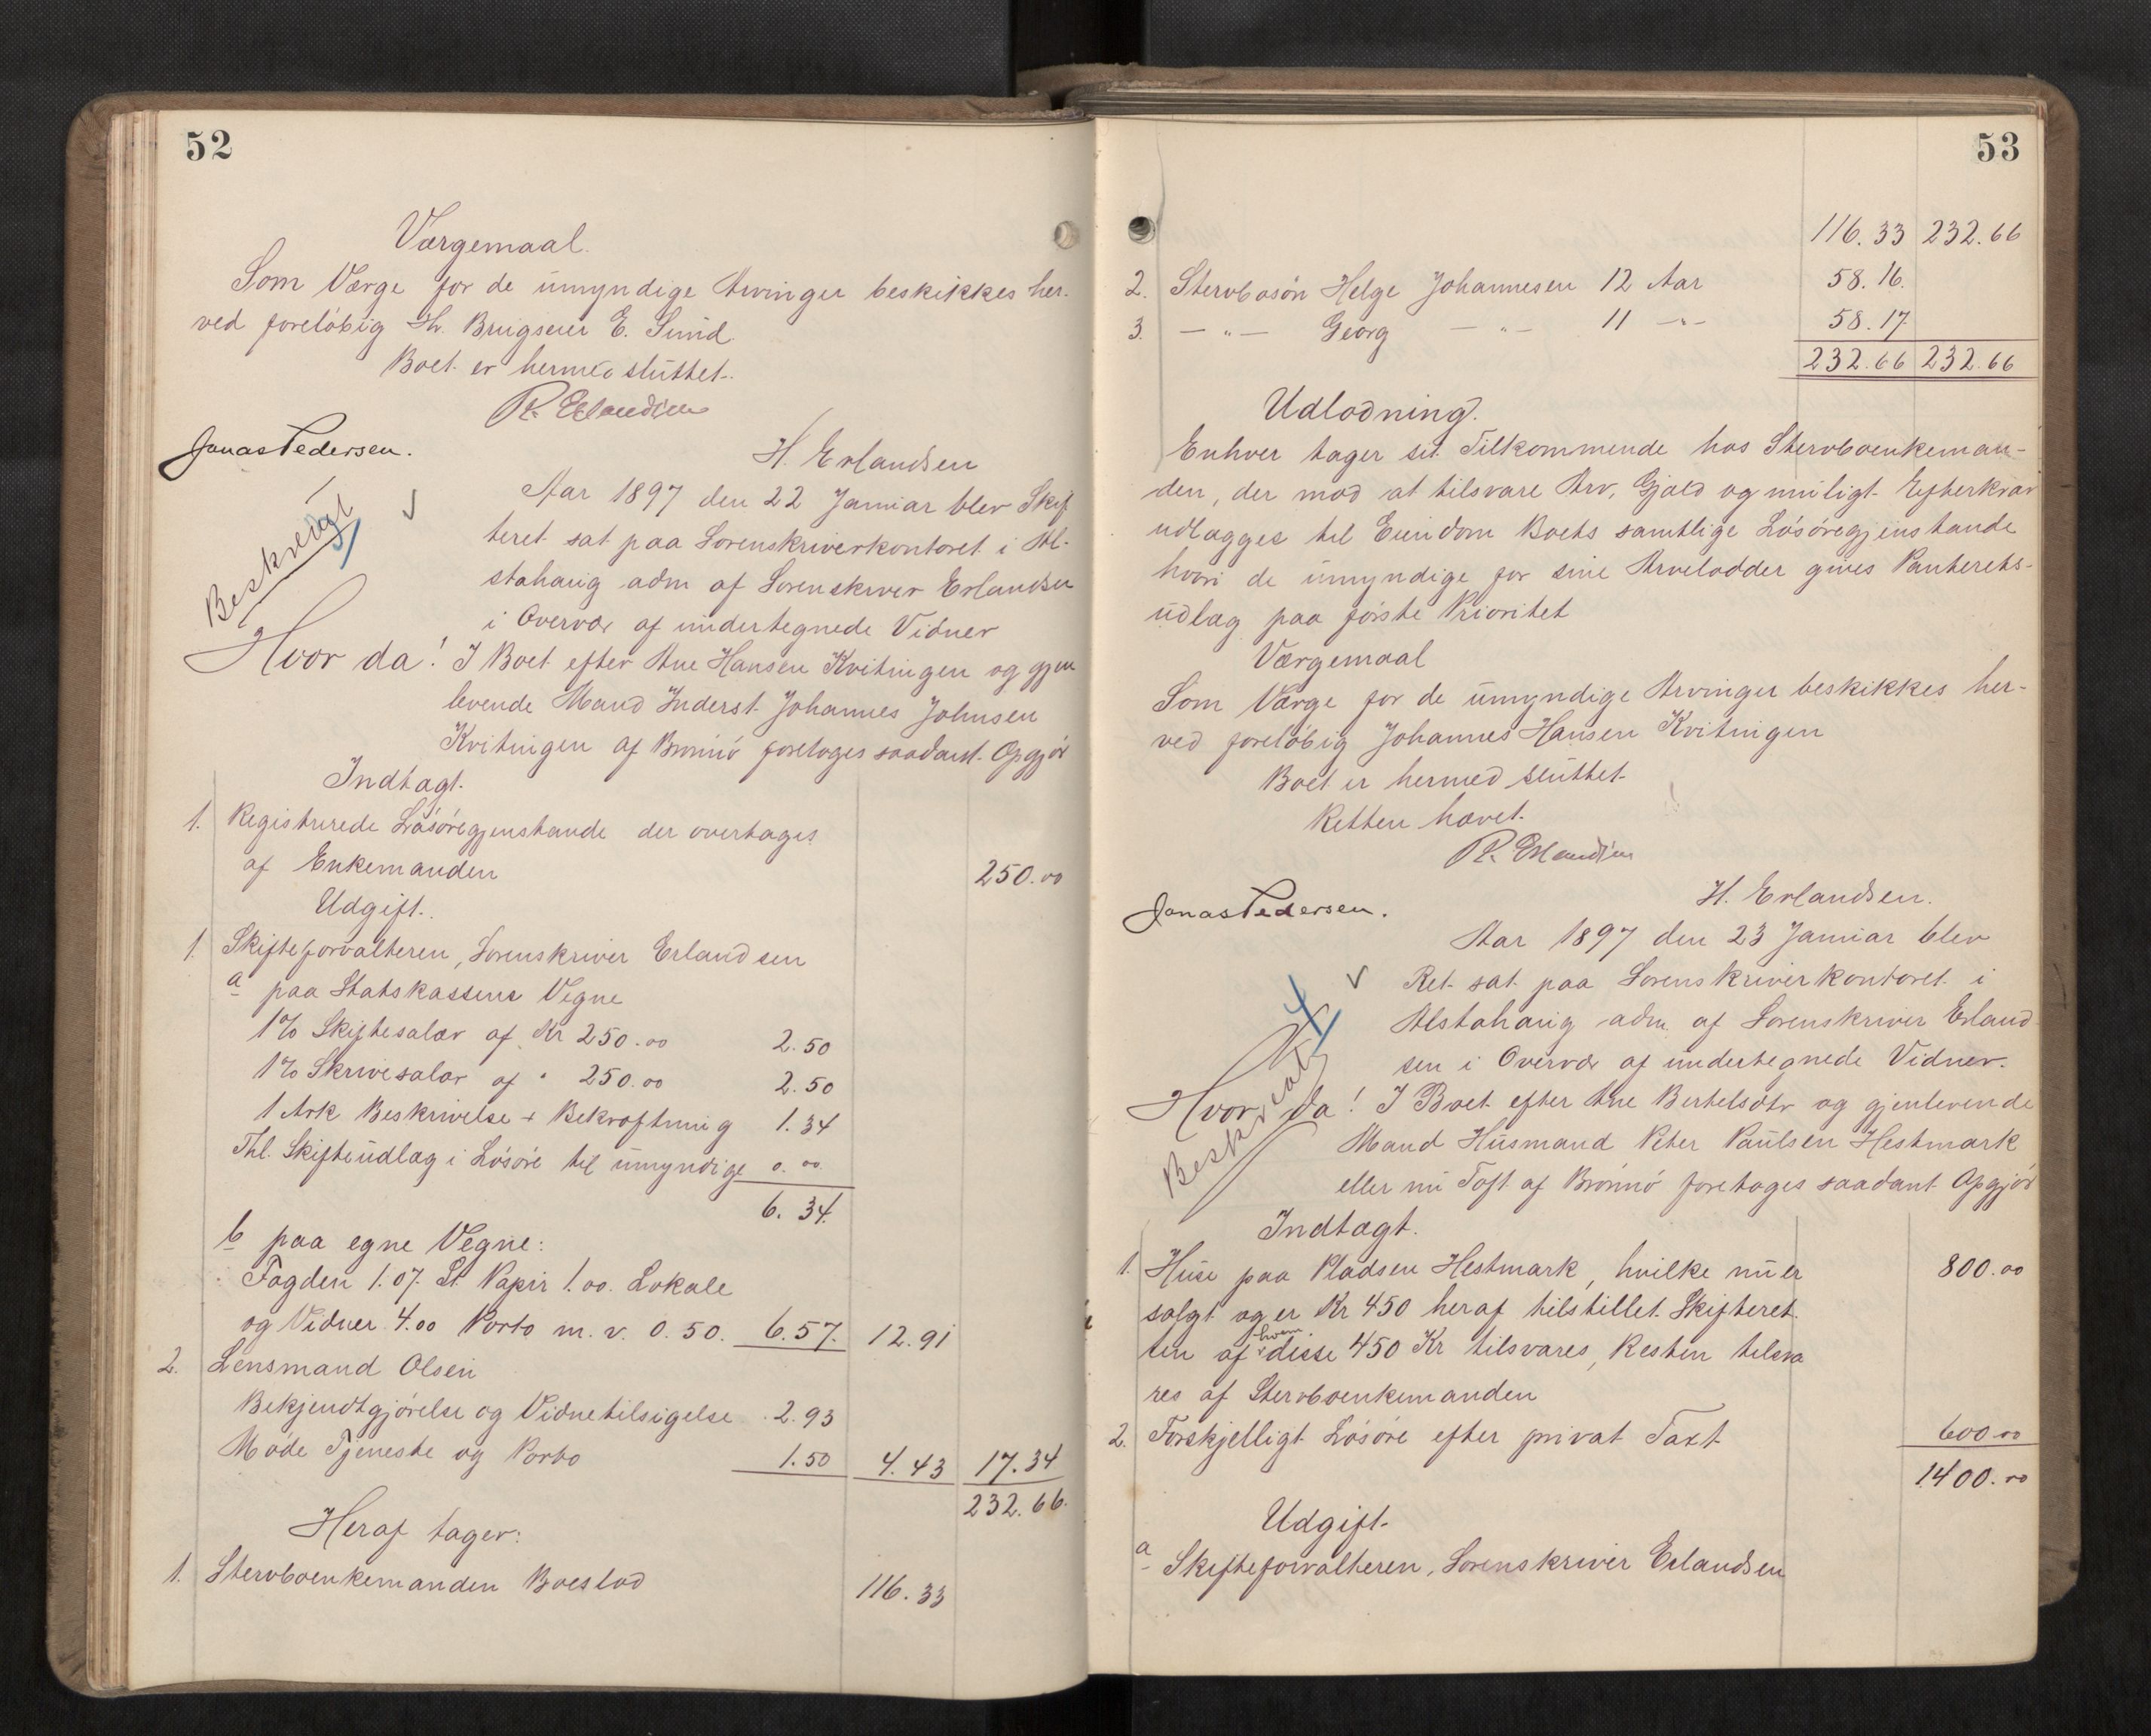 52
Værgemaal.
Som Værge for de umyndige Arvinger beskikkes her-
ved foreløbig Hr. Brugseier E. Sund.
Boet er hermed sluttet.
R. Erlandsen
Jonas Pedersen.
H. Erlandsen
Beskrevet
Aar 1897 den 22 Januar blev Skif
teret sat paa Sorenskriverkontoret i Al-
stahaug adm af Sorenskriver Erlandsen
i Overvær af undertegnede Vidner
Hvor da! I Boet efter Ane Hansen Kvitingen og gjen
levende Mand Inderst Johannes Johnsen
Kvitingen af Brønnø foretoges saadant Opgjør
Indtægt.
1. Registrerede Løsøregjenstande der overtages
af Enkemanden 250.00
Udgift.
1. Skifteforvalteren, Sorenskriver Erlandsen
a paa Statskassens Vegne
1% Skiftesalær af Kr 250.00 2.50
1% Skrivesalær af " 250.00 2.50
1 Ark Beskrivelse + Bekræftning 1.34
Thl. Skifteudlæg i Løsøre til umyndige 0.00
6.34
b paa egne Vegne:
Fogden 1.07. St. Papir 1.00. Lokale
og Vidner 4.00 Porto m. v. 0.50. 6.57. 12.91
2. Lensmand Olsen
Bekjendtgjørelse og Vidnetilsigelse 2.93
Møde Tjeneste og Porto 1.50 4.43 17.34
232.66.
Heraf tager:
1. Stervboenkemanden Boeslod 116.33
53
116.33 232.66
2. Stervbosøn Helge Johannesen 12 Aar 58.16.
3. — " — Georg — " — 11 — " — 58.17
232.66 232.66
Udlodning.
Enhver tager sit Tilkommende hos Stervboenkeman-
den, der mod at tilsvare Arv, Gjæld og muligt Efterkrav
udlægges til Eiendom Boets samtlige Løsøregjenstande
hvori de umyndige for sine Arvelodder gives Panterets-
udlæg paa første Prioritet
Værgemaal
Som Værge for de umyndige Arvinger beskikkes her-
ved foreløbig Johannes Hansen Kvitingen
Boet er hermed sluttet
Retten hævet.
R. Erlandsen
Jonas Pedersen.
H. Erlandsen.
Aar 1897 den 23 Januar blev
Ret sat paa Sorenskriverkontoret i
Alstahaug adm af Sorenskriver Erland
sen i Overvær af undertegnede Vidner.
Beskrevet
Hvor da! I Boet efter Ane Bertelsdtr og gjenlevende
Mand Husmand Peter Paulsen Hestmark
eller nu Toft af Brønnø foretoges saadant Opgjør
Indtægt.
1. Huse paa Pladsen Hestmark, hvilke nu er 800.00
solgt og er Kr 450 heraf tilstillet Skifteret
ten af hvem disse 450 Kr tilsvares, Resten tilsva
res af Stervboenkemanden
2. Forskjelligt Løsøre efter privat Taxt 600.00
1400.00
Udgift
a Skifteforvalteren, Sorenskriver Erlandsen